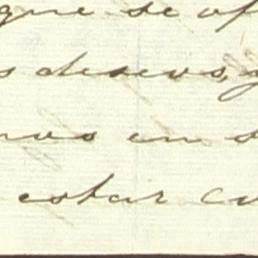 que se of
s deseos, y
nos en s
estar cu